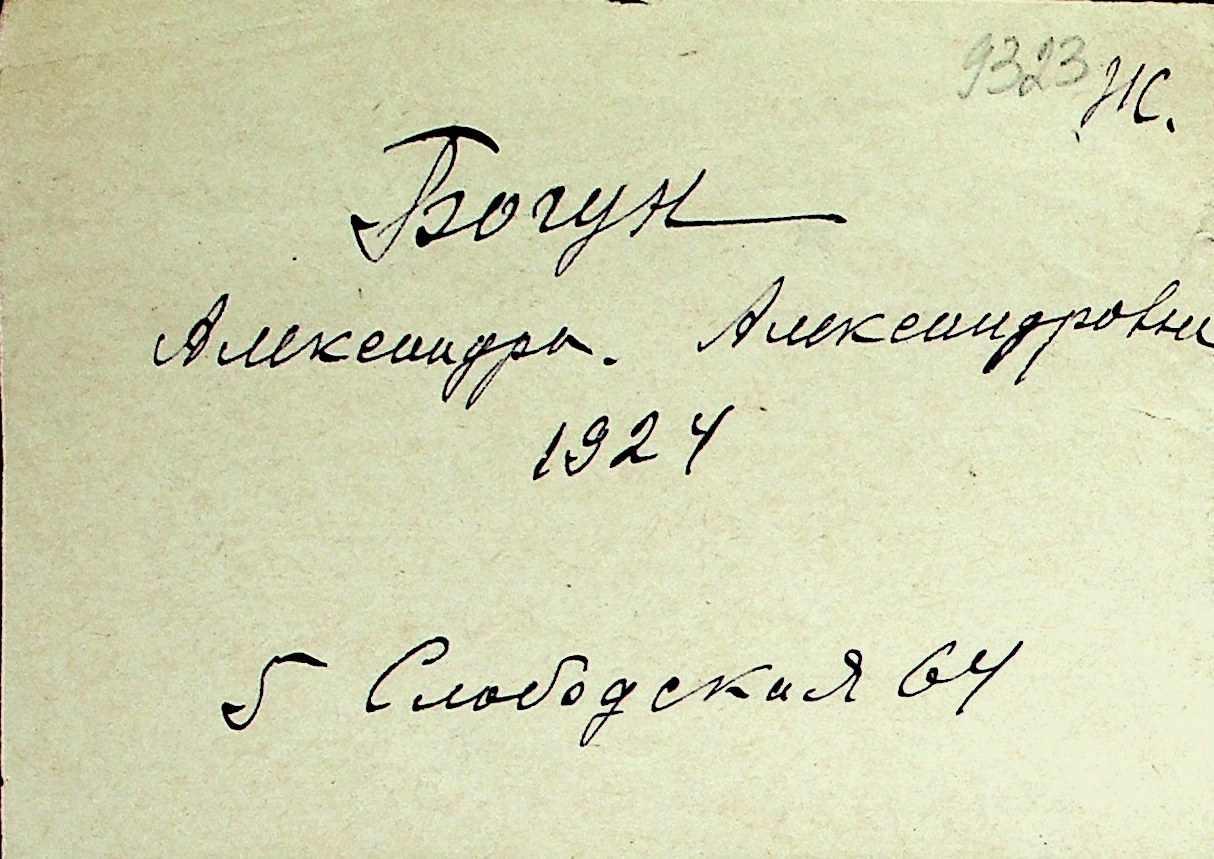 9323 Ж.
Богун
Александра. Александровна
1924
5 Слободская 64